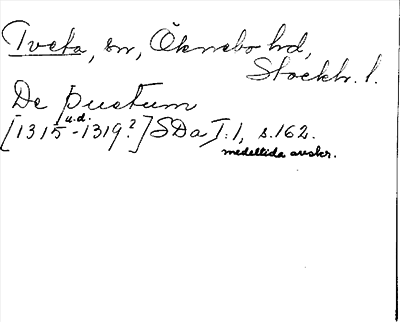 Tveta, sn, Öknebo hd,
Stockh. l.
De þuetum
u.d.
[1315-1319?] SDa I:1, s. 162.
medeltida avskr.